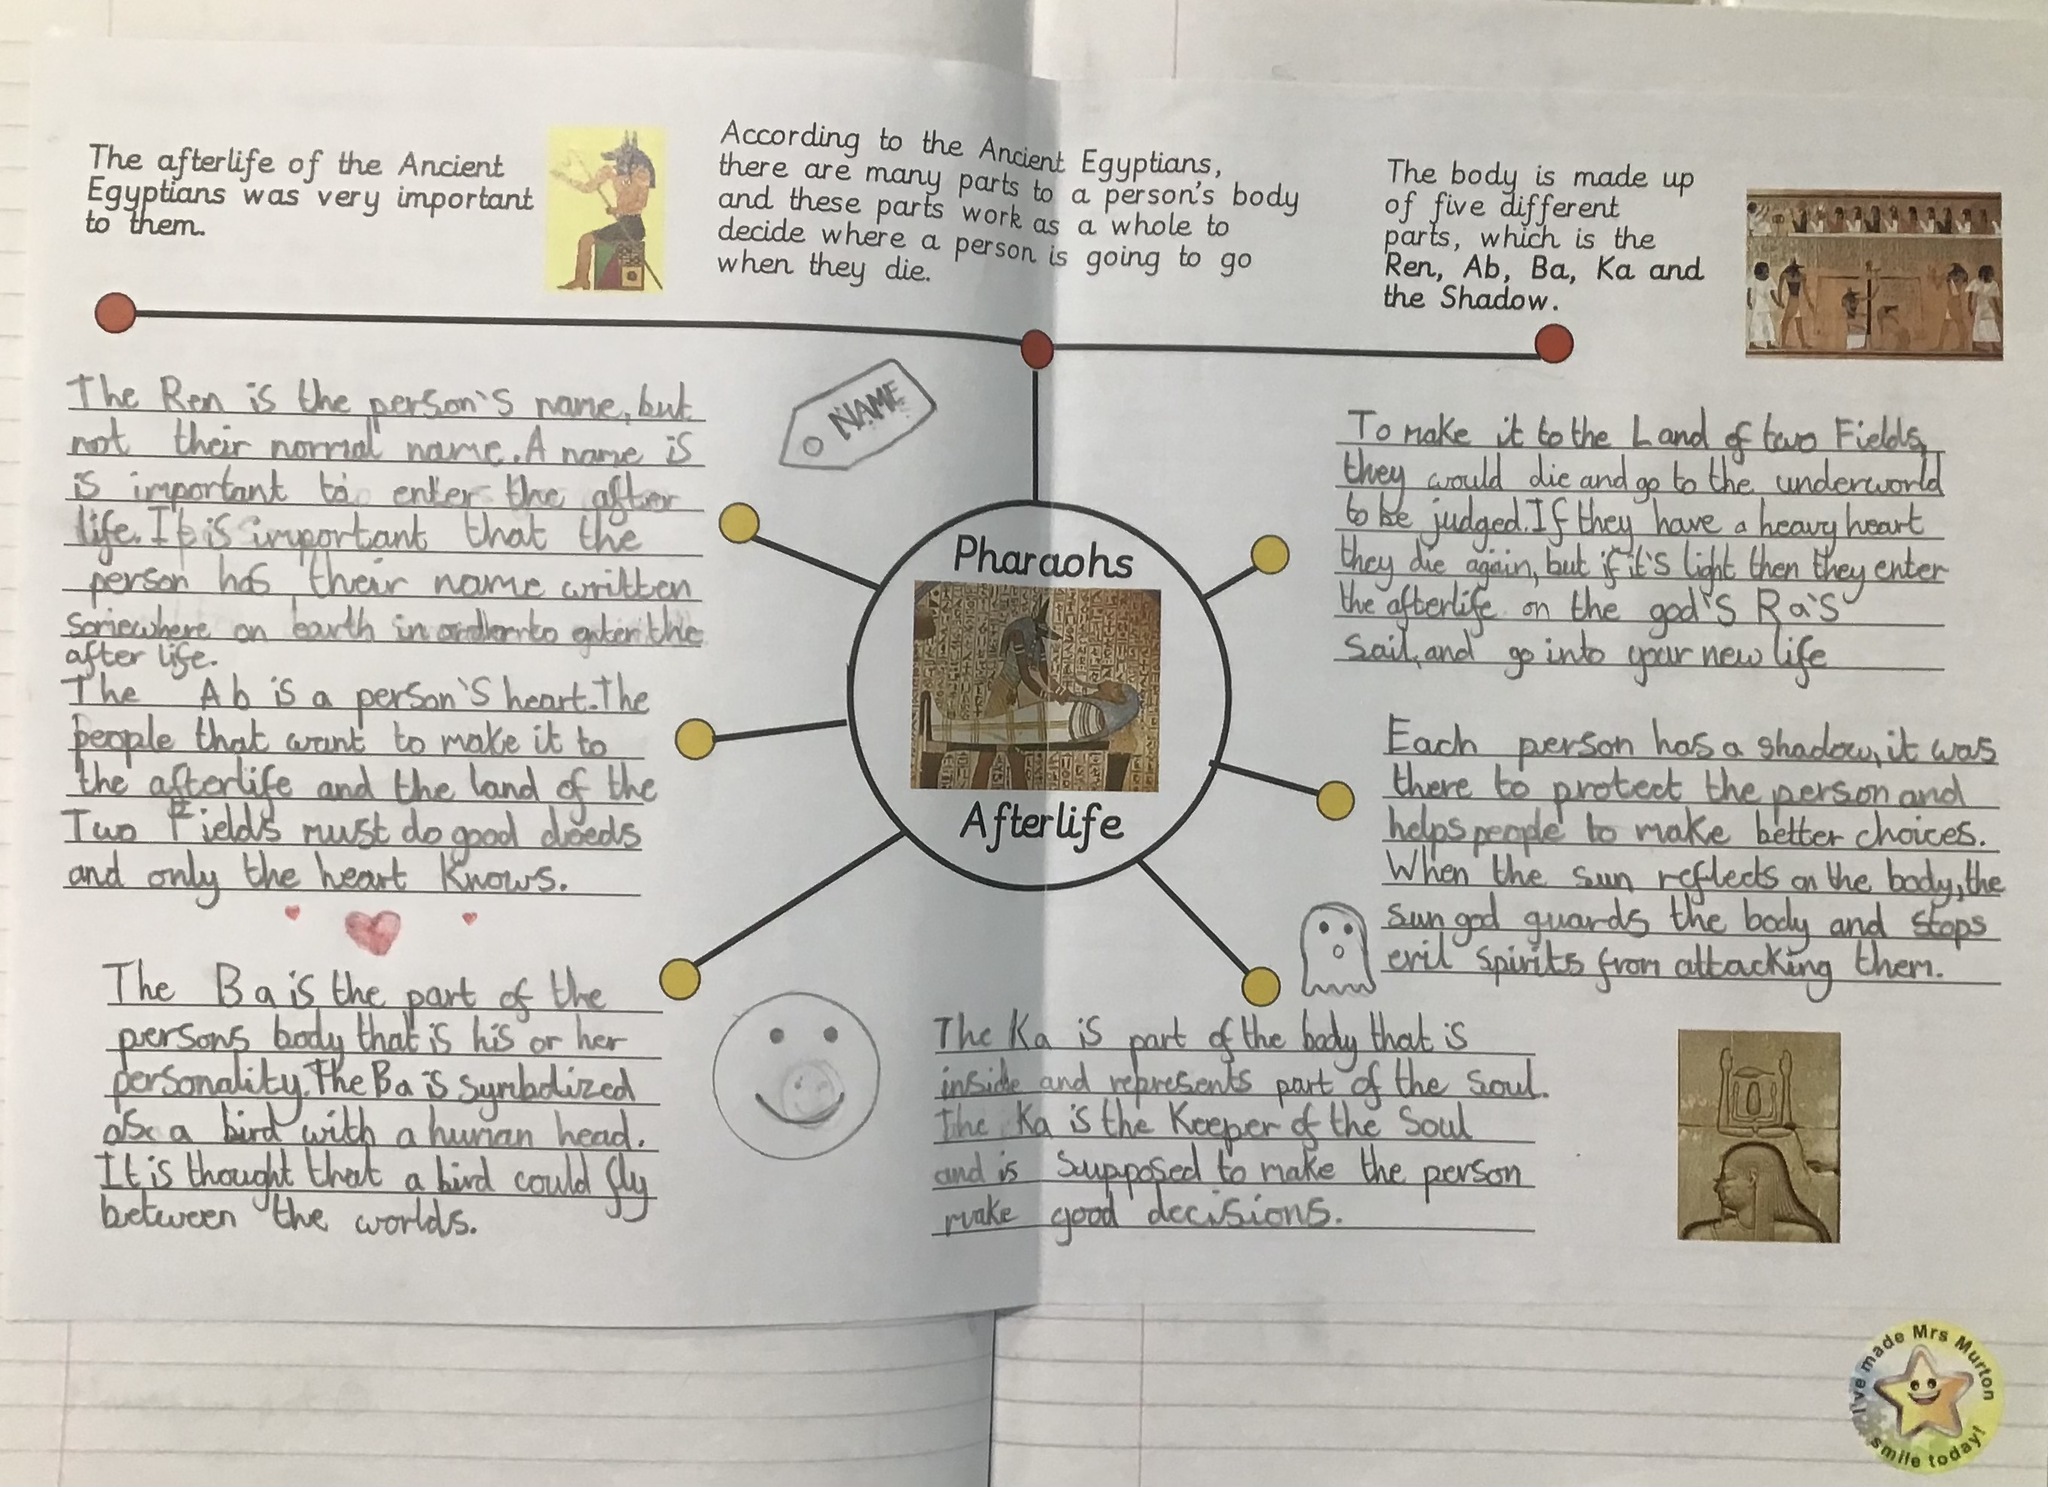 The afterlife of the Ancient
Egyptians was very important
to them.
According to the Ancient Egyptians,
there are many parts to a person's body
and these parts work as a whole to
decide where a person is going to go
when they die.
The body is made up
of five different
parts, which is the
Ren, Ab, Ba, Ka and
the Shadow.
NAME
The Ren is the person's name, but
not their normal name. A name is
is important to enter the after
life. It is important that the
person has their name written
somewhere on earth in order to enter the
after life.
The Ab is a person's heart. The
people that want to make it to
the afterlife and the land of the
Two Fields must do good deeds
and only the heart knows.
The Ba is the part of the
persons body that is his or her
personality. The Ba is symbolized
as a bird with a human head.
It is thought that a bird could fly
between the worlds.
Pharaohs
Afterlife
To make it to the Land of two Fields,
they would die and go to the underworld
to be judged. If they have a heavy heart
they die again, but if it's light then they enter
the afterlife on the god's Ra's
Sail, and go into your new life
Each person has a shadow, it was
there to protect the person and
helps people to make better choices.
When the sun reflects on the body, the
sun god guards the body and stops
evil spirits from attacking them.
The Ka is part of the body that is
inside and represents part of the soul.
The Ka is the Keeper of the Soul
and is supposed to make the person
make good decisions.
I've made Mrs Murton
smile today!